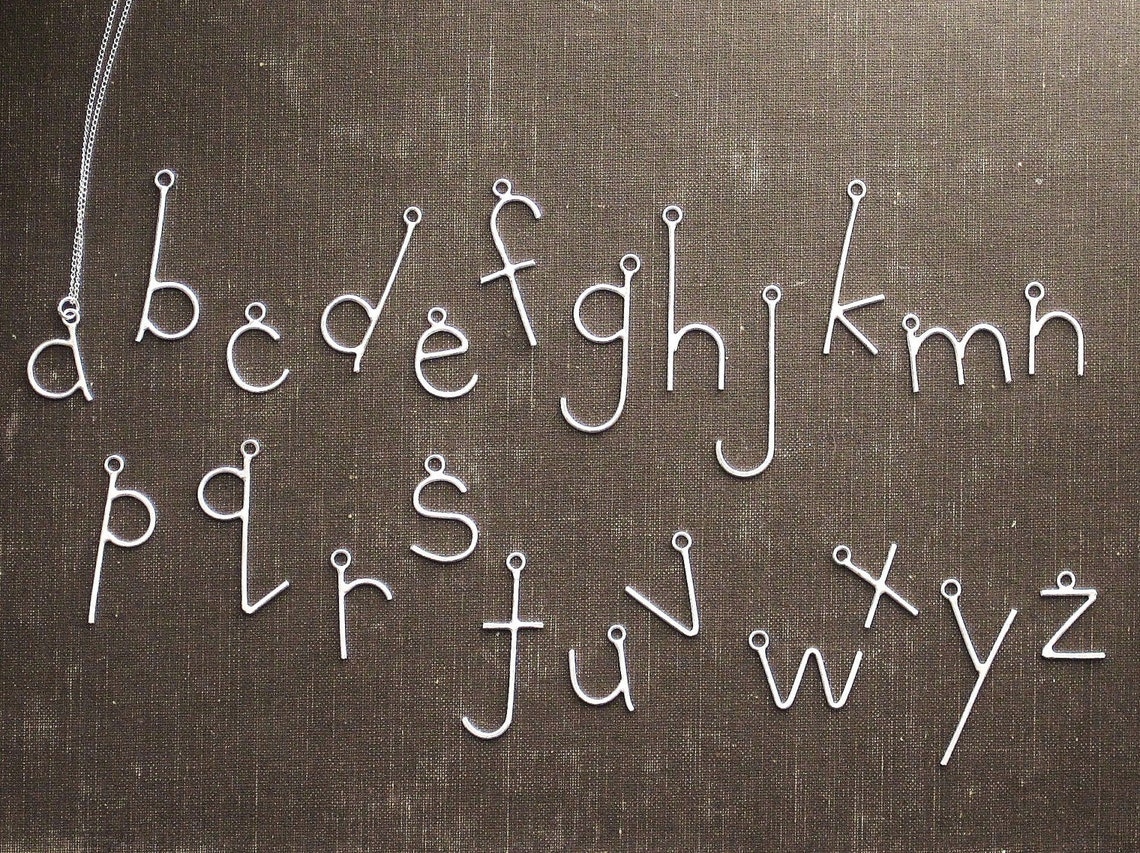 a b c d e f g h j k m n
p q r s t u v w x y z